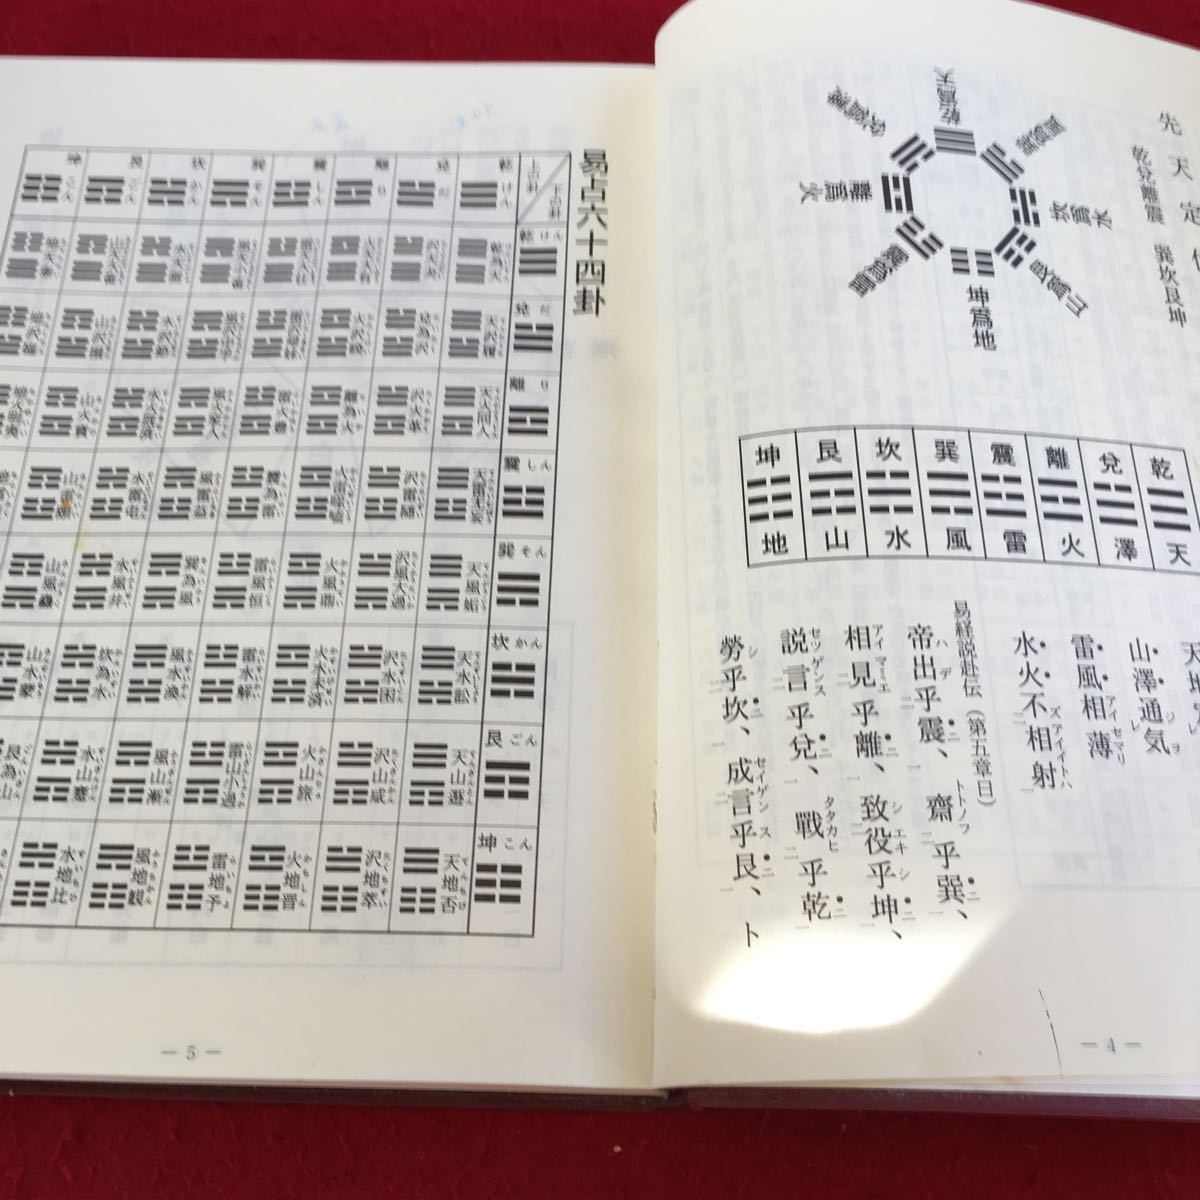 先天定
乾兌離震 巽坎艮坤
乾為天
離為火
坎為水
坤為地
乾 兌 離 震 巽 坎 艮 坤
天 澤 火 雷 風 水 山 地
天地
山澤通気
雷風相薄
水火不相射
易経説卦伝(第五章曰)
帝出乎震、齋乎巽、
相見乎離、致役乎坤、
説言乎兌、戦乎乾
勞乎坎、成言乎艮、ト
— 4 —
易占六十四卦
上の卦 下の卦
乾けん 兌だ 離り 震しん 巽そん 坎かん 艮ごん 坤こん
乾けん 乾為天 沢天夬 火天大有 雷天大壮 風天小畜 水天需 山天大畜 地天泰
兌だ 天沢履 兌為沢 火沢睽 雷沢帰妹 風沢中孚 水沢節 山沢損 地沢臨
離り 天火同人 沢火革 離為火 雷火豊 風火家人 水火既済 山火賁 地火明夷
震しん 天雷无妄 沢雷随 火雷噬嗑 震為雷 風雷益 水雷屯 山雷頤
巽そん 天風姤 沢風大過 火風鼎 雷風恒 巽為風 水風井 山風蠱
坎かん 天水訟 沢水困 火水未済 雷水解 風水渙 坎為水 山水蒙
艮ごん 天山遯 沢山咸 火山旅 雷山小過 風山漸 水山蹇 艮為山
坤こん 天地否 沢地萃 火地晋 雷地予 風地観 水地比
— 5 —